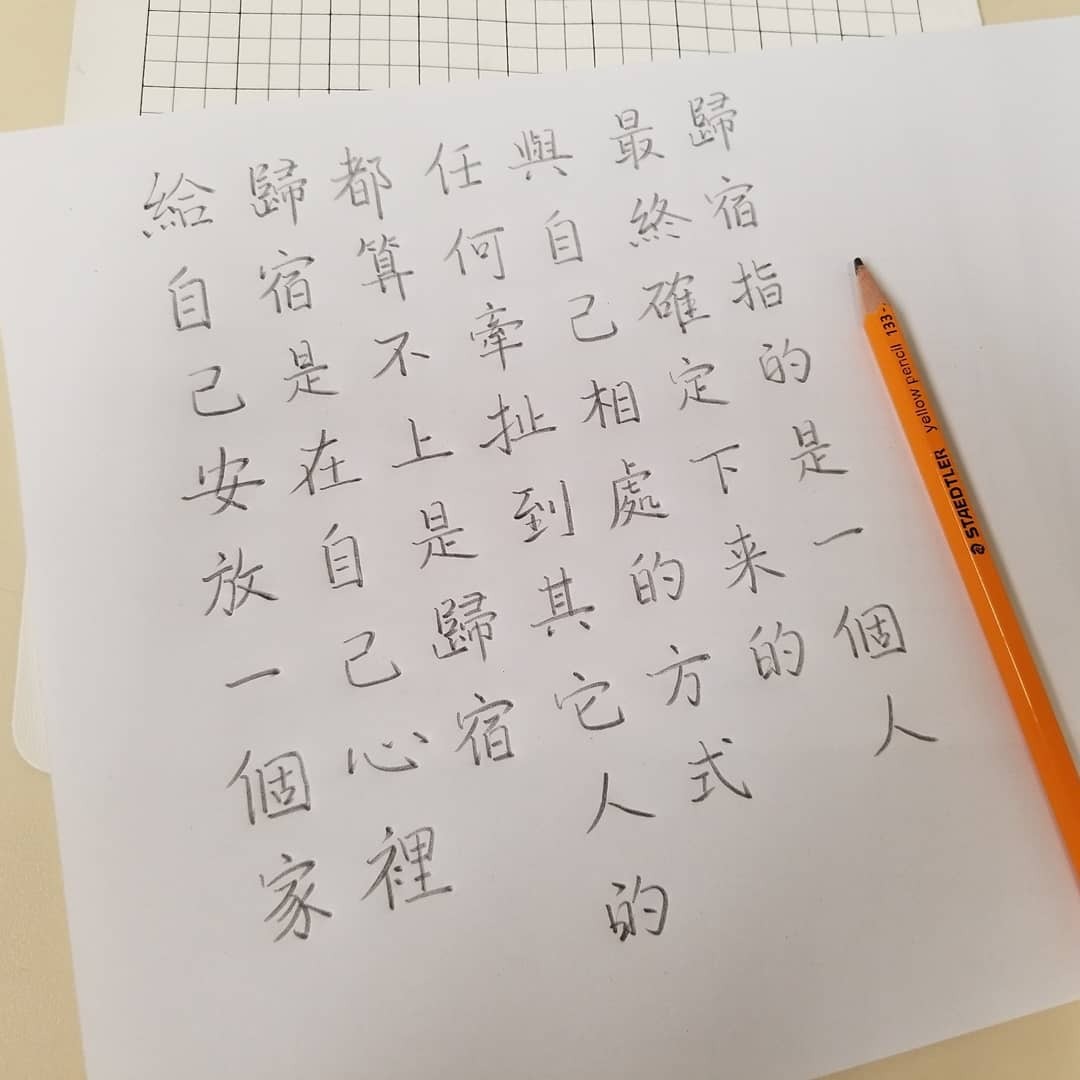 歸宿指的是一個人
最終確定下来的
與自己相處的方式
任何牽扯到其它人的
都算不上是歸宿
歸宿是在自己心裡
給自己安放一個家
STAEDTLER yellow pencil 133-